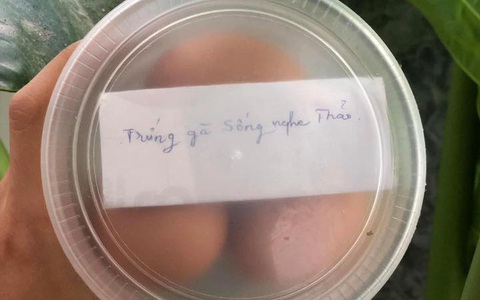 Trứng gà Sống nghe Thảo.